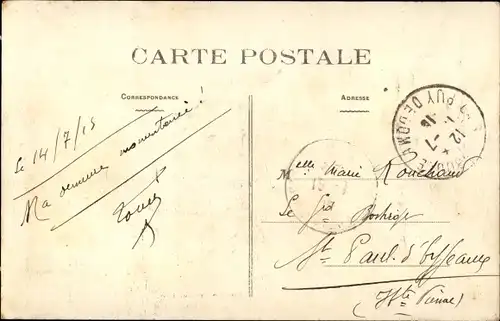 CARTE POSTALE
CORRESPONDANCE
ADRESSE
Le 14/7/15
Ma demeure momentanée!
PUY DE DOME
12 -7
15
Melle Marie Rouchaud
Le Gd
St Paul d'Eyjeaux
(Hte Vienne)